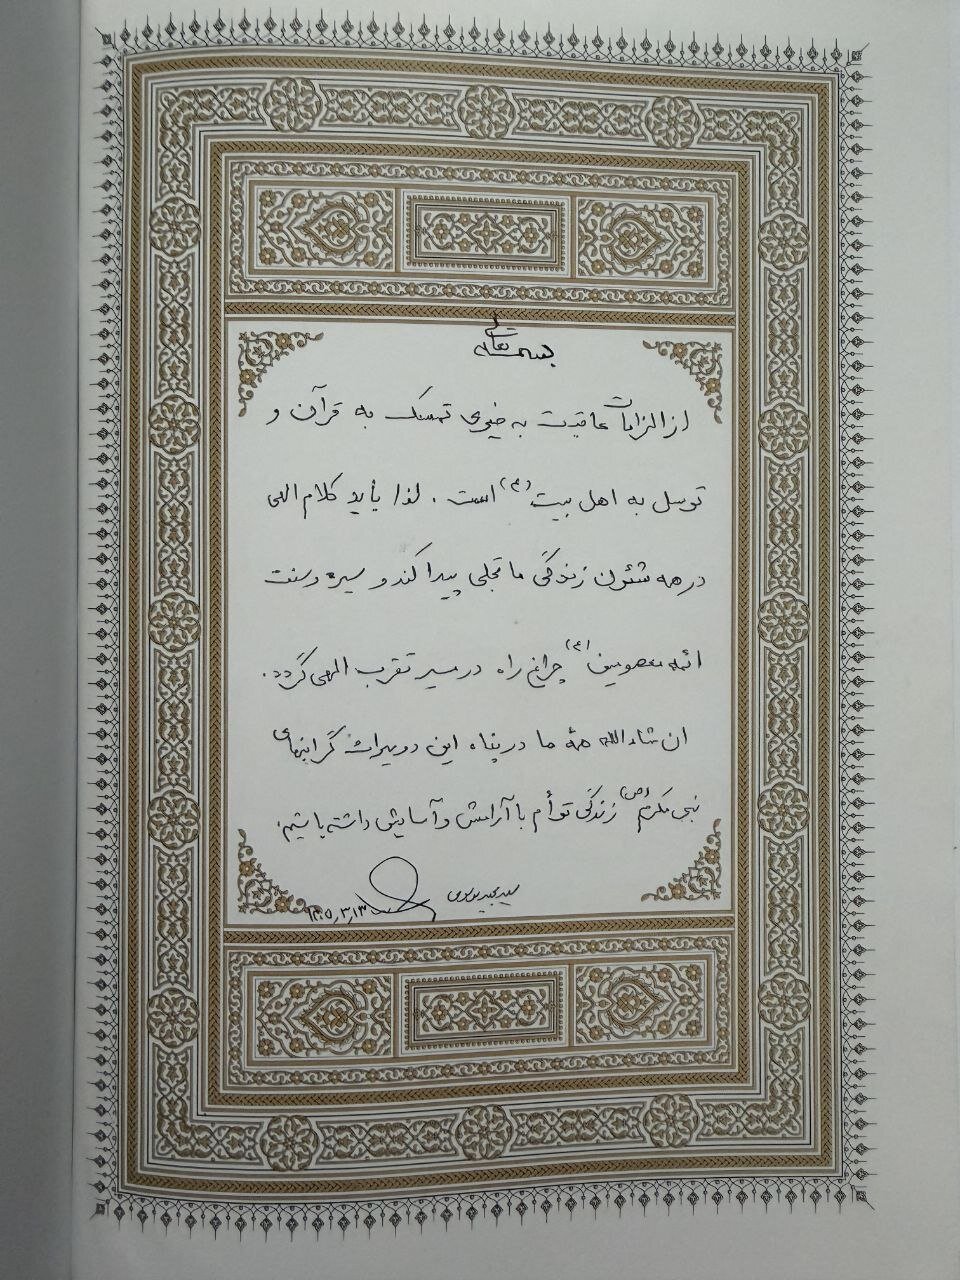 بسمه تعالی
از الزامات عاقبت به خیری تمسک به قرآن و
توسل به اهل بیت (ع) است. لذا باید کلام الهی
در همه شئون زندگی ما تجلی پیدا کند و سیره و سنت
ائمه معصومین (ع) چراغ راه در مسیر تقرب الهی گردد.
ان شاء الله همهٔ ما در پناه این دو میراث گرانبهای
نبی مکرم (ص) زندگی توأم با آرامش و آسایش داشته باشیم.
سید مجید موسوی